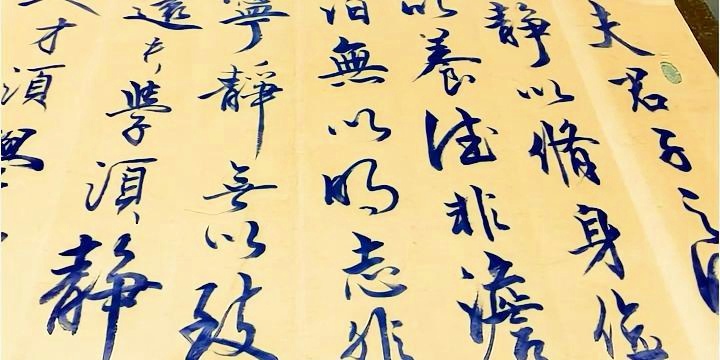 夫君子之
静以脩身儉
以養德非澹
泊無以明志非
寧靜無以致
遠夫學須静
才須學